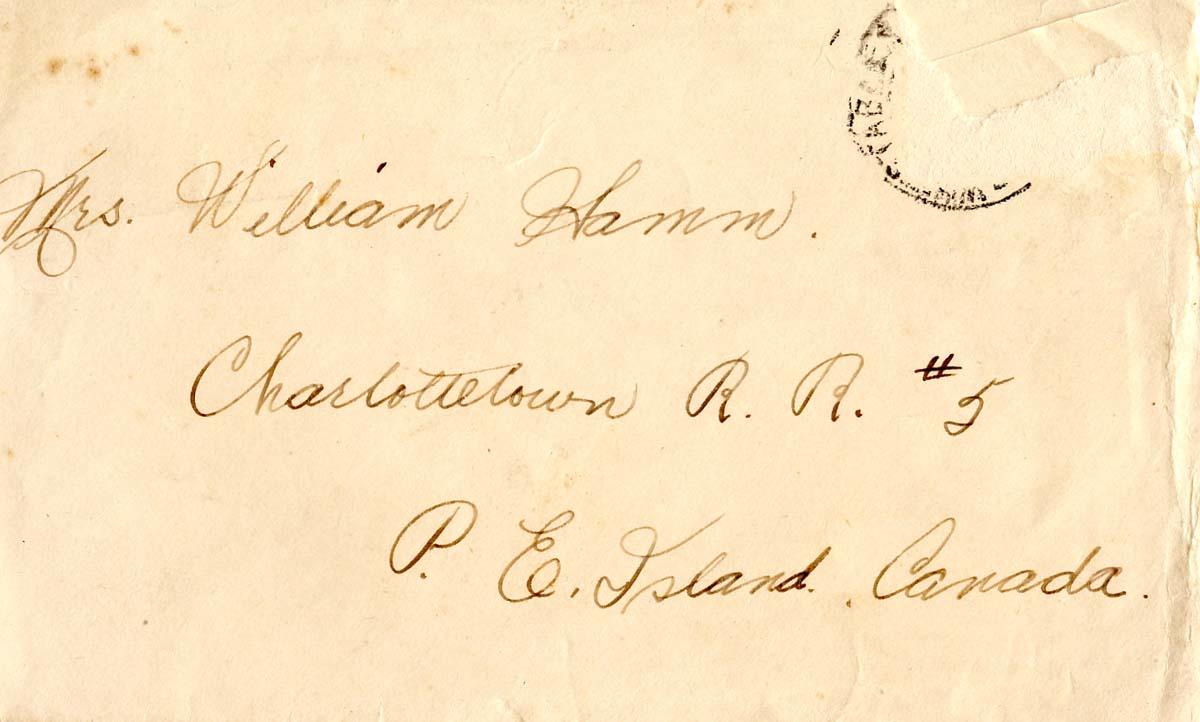 Mrs. William Hamm.
Charlottetown R. R. #5
P. E. Island. Canada.